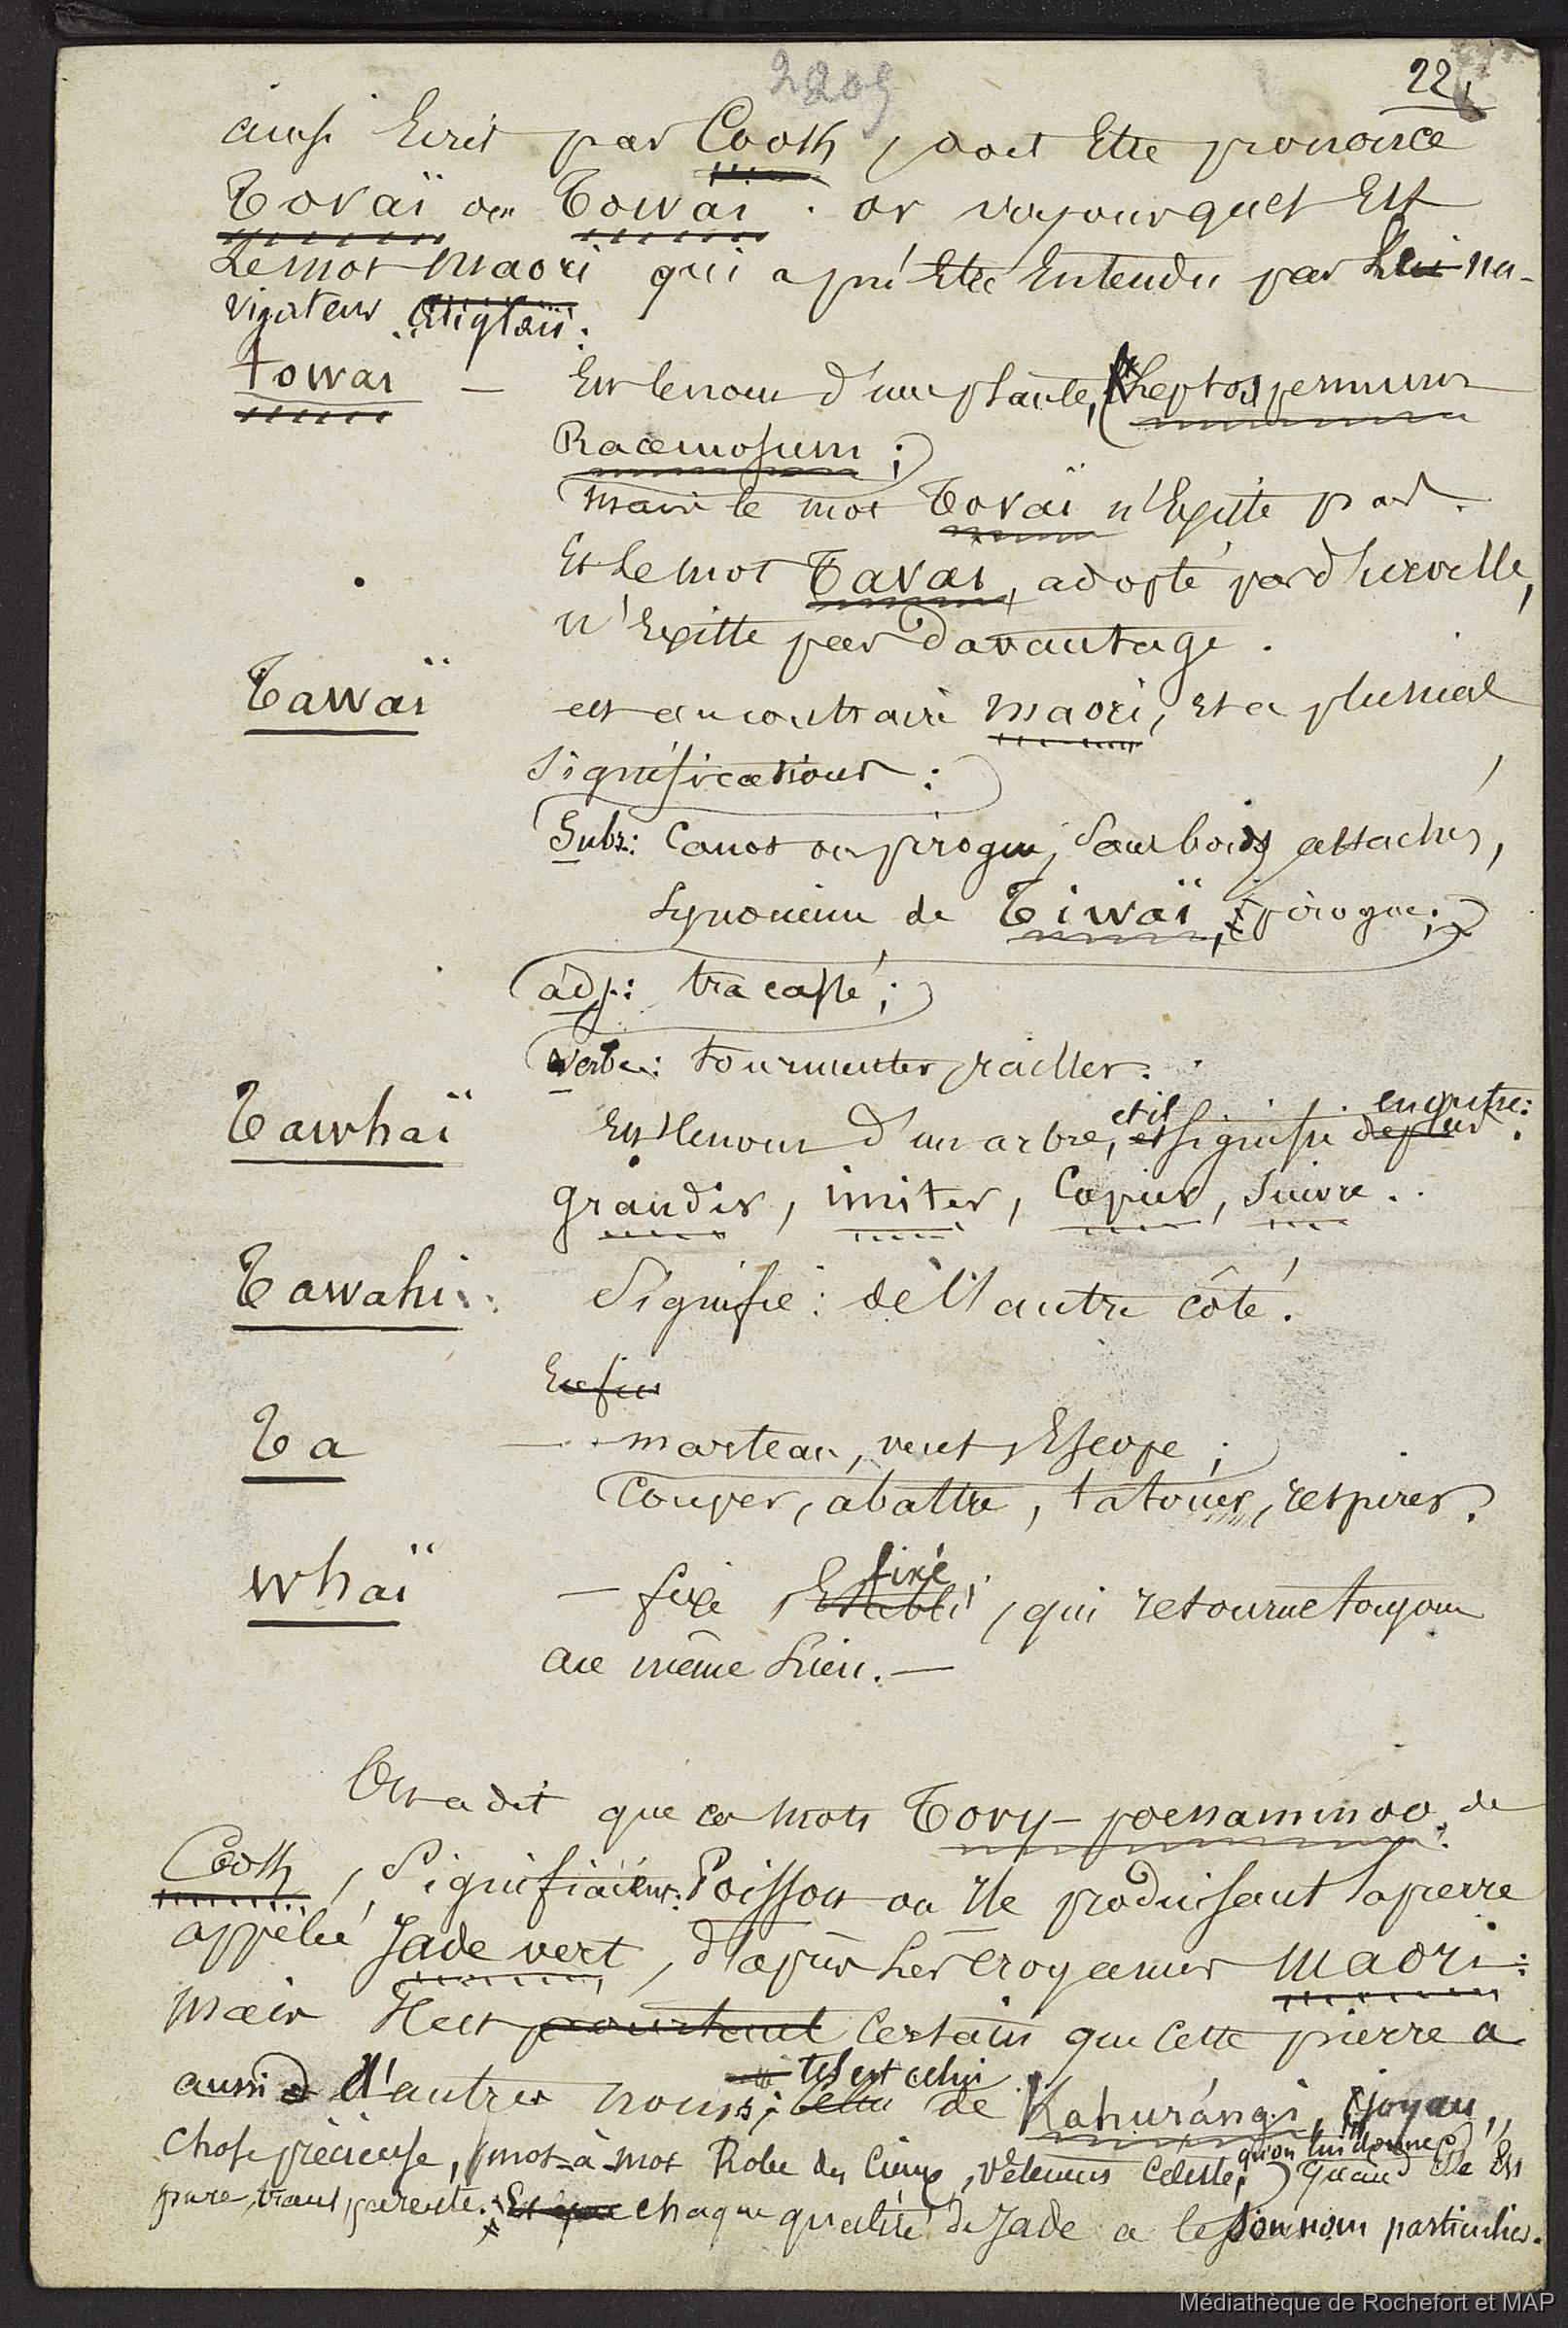 2209
22
ainsi Ecrit par Cook, doit Etre prononcé
Tovaï ou Towaï. or voyons quel Est
Le mot maori qui a pu Etre Entendu par Le na-
vigateur anglais:
towaï — Est le nom d'une plante, (Leptospermum
Racemosum;)
mais le mot Tovaï n'Existe pas.
Et Le mot Tavaï, adopté par d'urville,
n'Existe pas Davantage.
Tawaï est au contraire maori, et a plusieurs
significations:
Subs: Canot ou pirogue, sans bords attachés,
synonime de Tiwaï, pirogue;)
adj: tracassé;
verbe: tourmenter, railler.
et il en outre:
Tawhaï Est le nom d'un arbre, et signifie de plus:
grandir, imiter, Copier, Suivre..
Tawahi: Signifie: de l'autre côté.
Enfin
Ta — marteau, vent, Escope;
Couper, abattre, tatouer, respirer.
fixé
Whaï — fixe, Etabli, qui retourne toujours
au même Lieu. —
On a dit que ces mots Tovy-poenammoo, de
Cook, Signifiaient: Poisson ou Ile produisant la pierre
appelée Jade vert, d'après Les croyances maori:
mais Il est pourtant Certain que cette pierre a
tel est celui
aussi d'autres noms; Celui de Kahurangi, (joyau,
qu'on lui donne
chose précieuse, mot-à-mot Robe des Cieux, vêtements Celeste,) quand Elle Est
pure, transparente. Et que chaque qualité de Jade a le Son nom particulier.
Médiathèque de Rochefort et MAP